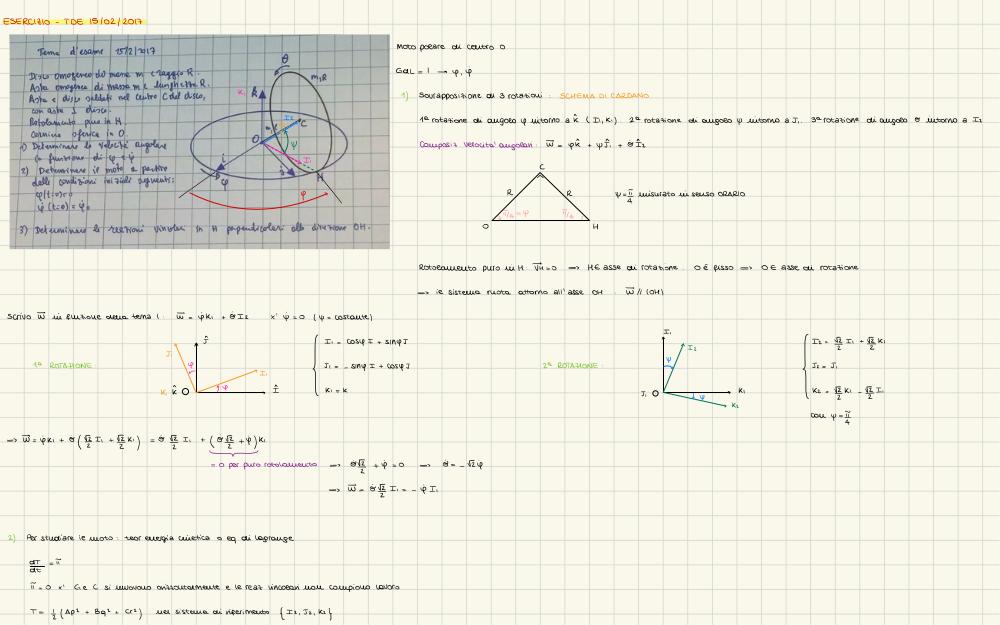 ESERCIZIO - TDE 15/02/2017
Tema d'esame 15/2/2017
Disco omogeneo di massa m e raggio R.
Asta omogenea di massa m e lunghezza R.
Asta e disco saldati nel centro C del disco,
con asta ⊥ disco.
Rotolamento puro in H.
Cerniera sferica in O.
1) Determinare la velocità angolare
in funzione di φ e φ̇
2) Determinare il moto a partire
dalle condizioni iniziali seguenti:
φ(t=0)=0
φ̇(t=0)=φ̇₀
3) Determinare le reazioni vincolari in H perpendicolari alla direzione OH.
θ
m,R
K₁
k
I₂
C
O
ψ
I₁
i
φ
H
φ
Moto polare di centro O
GdL = 1 → φ, φ̇
1) Sovrapposizione di 3 rotazioni: SCHEMA DI CARDANO
1ª rotazione di angolo φ intorno a k̂ (I, K₁) 2ª rotazione di angolo ψ intorno a J₁ 3ª rotazione di angolo θ intorno a I₂
Composiz. velocità angolari: w̄ = φ̇k̂ + ψ̇Ĵ₁ + θ̇Î₂
C
R R
π/4 = ψ π/4
O H
ψ = π/4 misurato in senso ORARIO
Rotolamento puro in H: v̄H = 0 ⟹ H ∈ asse di rotazione. O è fisso ⟹ O ∈ asse di rotazione
⟹ il sistema ruota attorno all'asse OH: w̄ // (OH)
Scrivo w̄ in funzione della terna 1: w̄ = φ̇K₁ + θ̇I₂ x' ψ̇ = 0 (ψ = costante)
1ª ROTAZIONE:
J₁ Ĵ φ I₁ φ K₁ k̂ O Î
I₁ = cosφ I + sinφ J
J₁ = - sinφ I + cosφ J
K₁ = K
2ª ROTAZIONE:
I₁ I₂ ψ J₁ O K₁ ψ K₂
I₂ = √2/2 I₁ + √2/2 K₁
J₂ = J₁
K₂ = √2/2 K₁ - √2/2 I₁
con ψ = π/4
⟹ w̄ = φ̇K₁ + θ̇(√2/2 I₁ + √2/2 K₁) = θ̇ √2/2 I₁ + (θ̇ √2/2 + φ̇) K₁
= 0 per puro rotolamento ⟹ θ̇ √2/2 + φ̇ = 0 ⟶ θ̇ = -√2 φ̇
⟹ w̄ = θ̇ √2/2 I₁ = - φ̇ I₁
2) Per studiare il moto: teor energia cinetica o eq. di Lagrange
dT/dt = π̃
π̃ = 0 x' G e C si muovono orizzontalmente e le reaz vincolari non compiono lavoro
T = 1/2 (Ap² + Bq² + Cr²) nel sistema di riferimento {I₂, J₂, K₂}